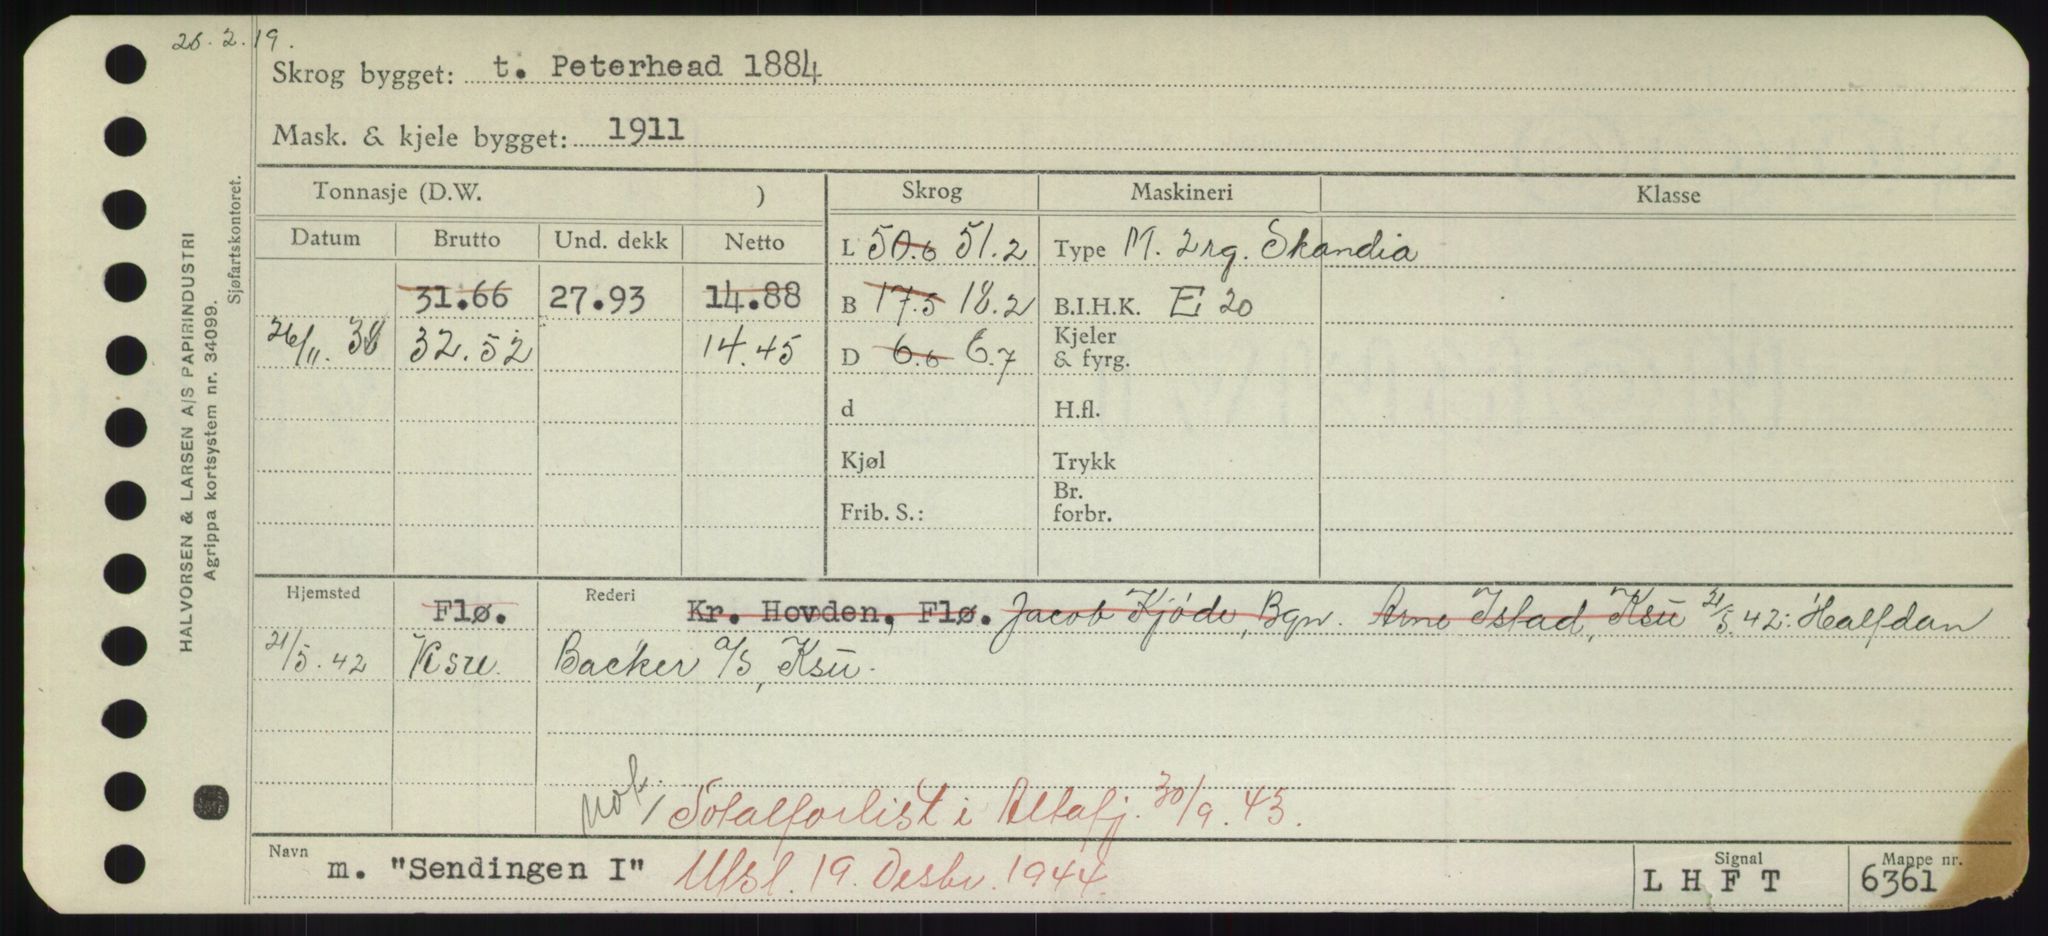 26.2.19.
Skrog bygget: t. Peterhead 1884
Mask. & kjele bygget: 1911
Tonnasje (D.W. ) Skrog Maskineri Klasse
Datum Brutto Und. dekk Netto L 50.6 51.2 Type M. 2rg. Skandia
31.66 27.93 14.88 B 17.5 18.2 B.I.H.K. E 20
26/11. 38 32.52 14.45 D 6.6 6.7 Kjeler & fyrg.
d H.fl.
Kjøl Trykk
Frib. S.: Br. forbr.
Hjemsted Flø. Rederi Kr. Hovden, Flø. Jacob Kjøde, Bgn. Arne Istad, Ksu 21/5.42: Halfdan
21/5.42 Ksu. Backer a/s, Ksu.
not/ Totalforlist i Altafj. 30/9.43.
Navn m. "Sendingen I" Utsl. 19. Desbr. 1944. Signal LHFT Mappe nr. 6361
HALVORSEN & LARSEN A/S PAPIRINDUSTRI
Agrippa kortsystem nr. 34099.
Sjøfartskontoret.